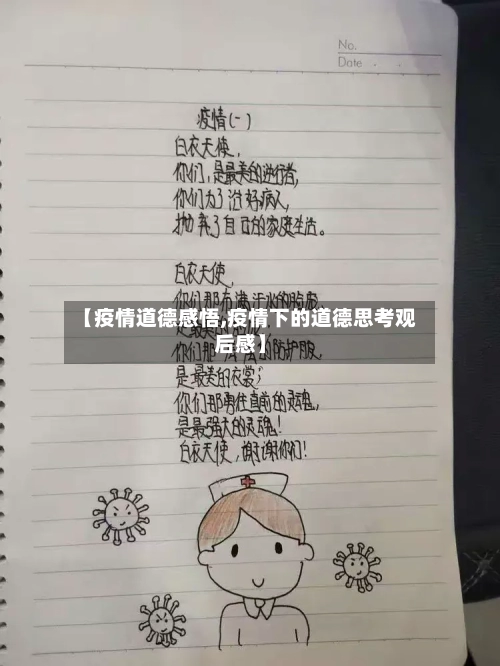 No.
Date
疫情(一)
白衣天使,
你们,是最美的逆行者,
你们为了治好病人,
抛弃了自己的家庭生活。
白衣天使,
你们那布满汗水的脸庞,
【疫情道德感悟,疫情下的道德思考观
后感】
你们那 的防护服,
是最美的衣裳;
你们那勇往直前的灵魂,
是最强大的灵魂!
白衣天使,谢谢你们!